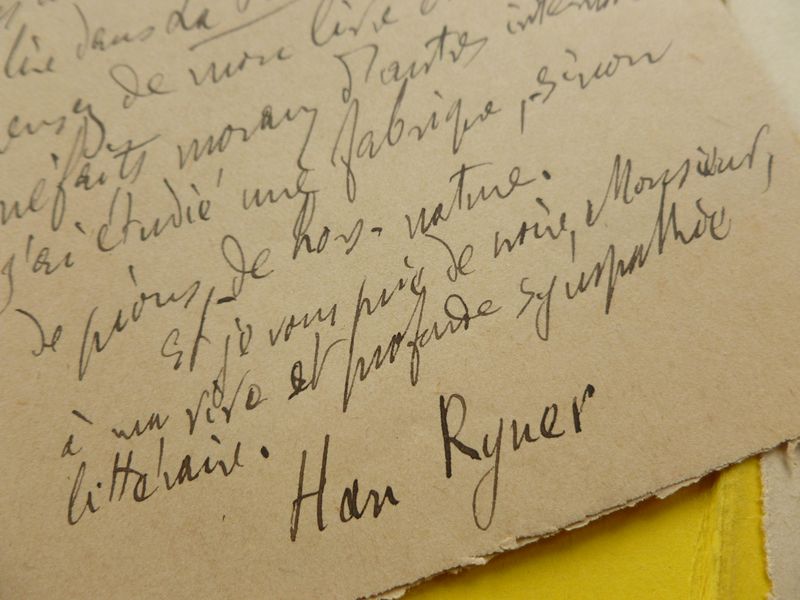 lire dans La
de mon livre
moraux d'autres
j'ai étudié une fabrique, sinon
de pions, de hors-nature.
Et je vous prie de croire, Monsieur,
à ma vive et profonde sympathie
littéraire.
Han Ryner